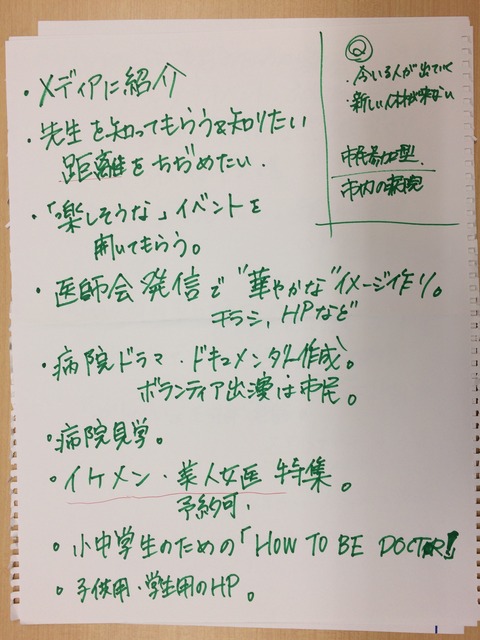 ・メディアに紹介
・先生を知ってもらう&知りたい
距離をちぢめたい.
・「楽しそうな」イベントを
開いてもらう。
・医師会発信で"華やかな"イメージ作り。
チラシ,HPなど
・病院ドラマ・ドキュメンタリー作成。
ボランティア出演は市民。
・病院見学。
・イケメン・美人女医特集。
予約可.
・小中学生のための「HOW TO BE DOCTOR!」
・子供用・学生用のHP。
Q
・今いる人が出ていく
・新しい人材が来ない
市民参加型.
市内の病院